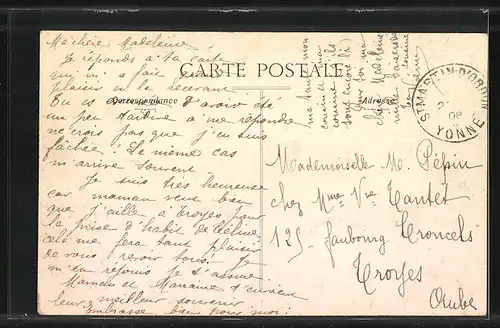 Ma chère Madeleine
Je réponds à ta carte
qui m'a fait
plaisir en la recevant
Tu es d'avoir été
un peu tardive à me répondre
ne crois pas que j'en suis
fâchée ! Le même cas
m'arrive souvent.
Je suis très heureuse
car maman veut bien
que j'aille à Troyes pour
la prise d'habit de
celà me fera tant plaisir
de vous revoir tous. Je
m'en réjouis je t'assure.
Maman et Marraine t'envoient
leur meilleur souvenir
Embrasse bien pour moi
CARTE POSTALE
Correspondance
Adresse
ma tante mon
ma
cousine
sont encore
chère Madeleine
mille baisers
cousine
ST MARTIN-D'ORDON
08
YONNE
Mademoiselle M. Pépin
chez Mme Vve Tantet
125 faubourg Croncels
Troyes
Aube